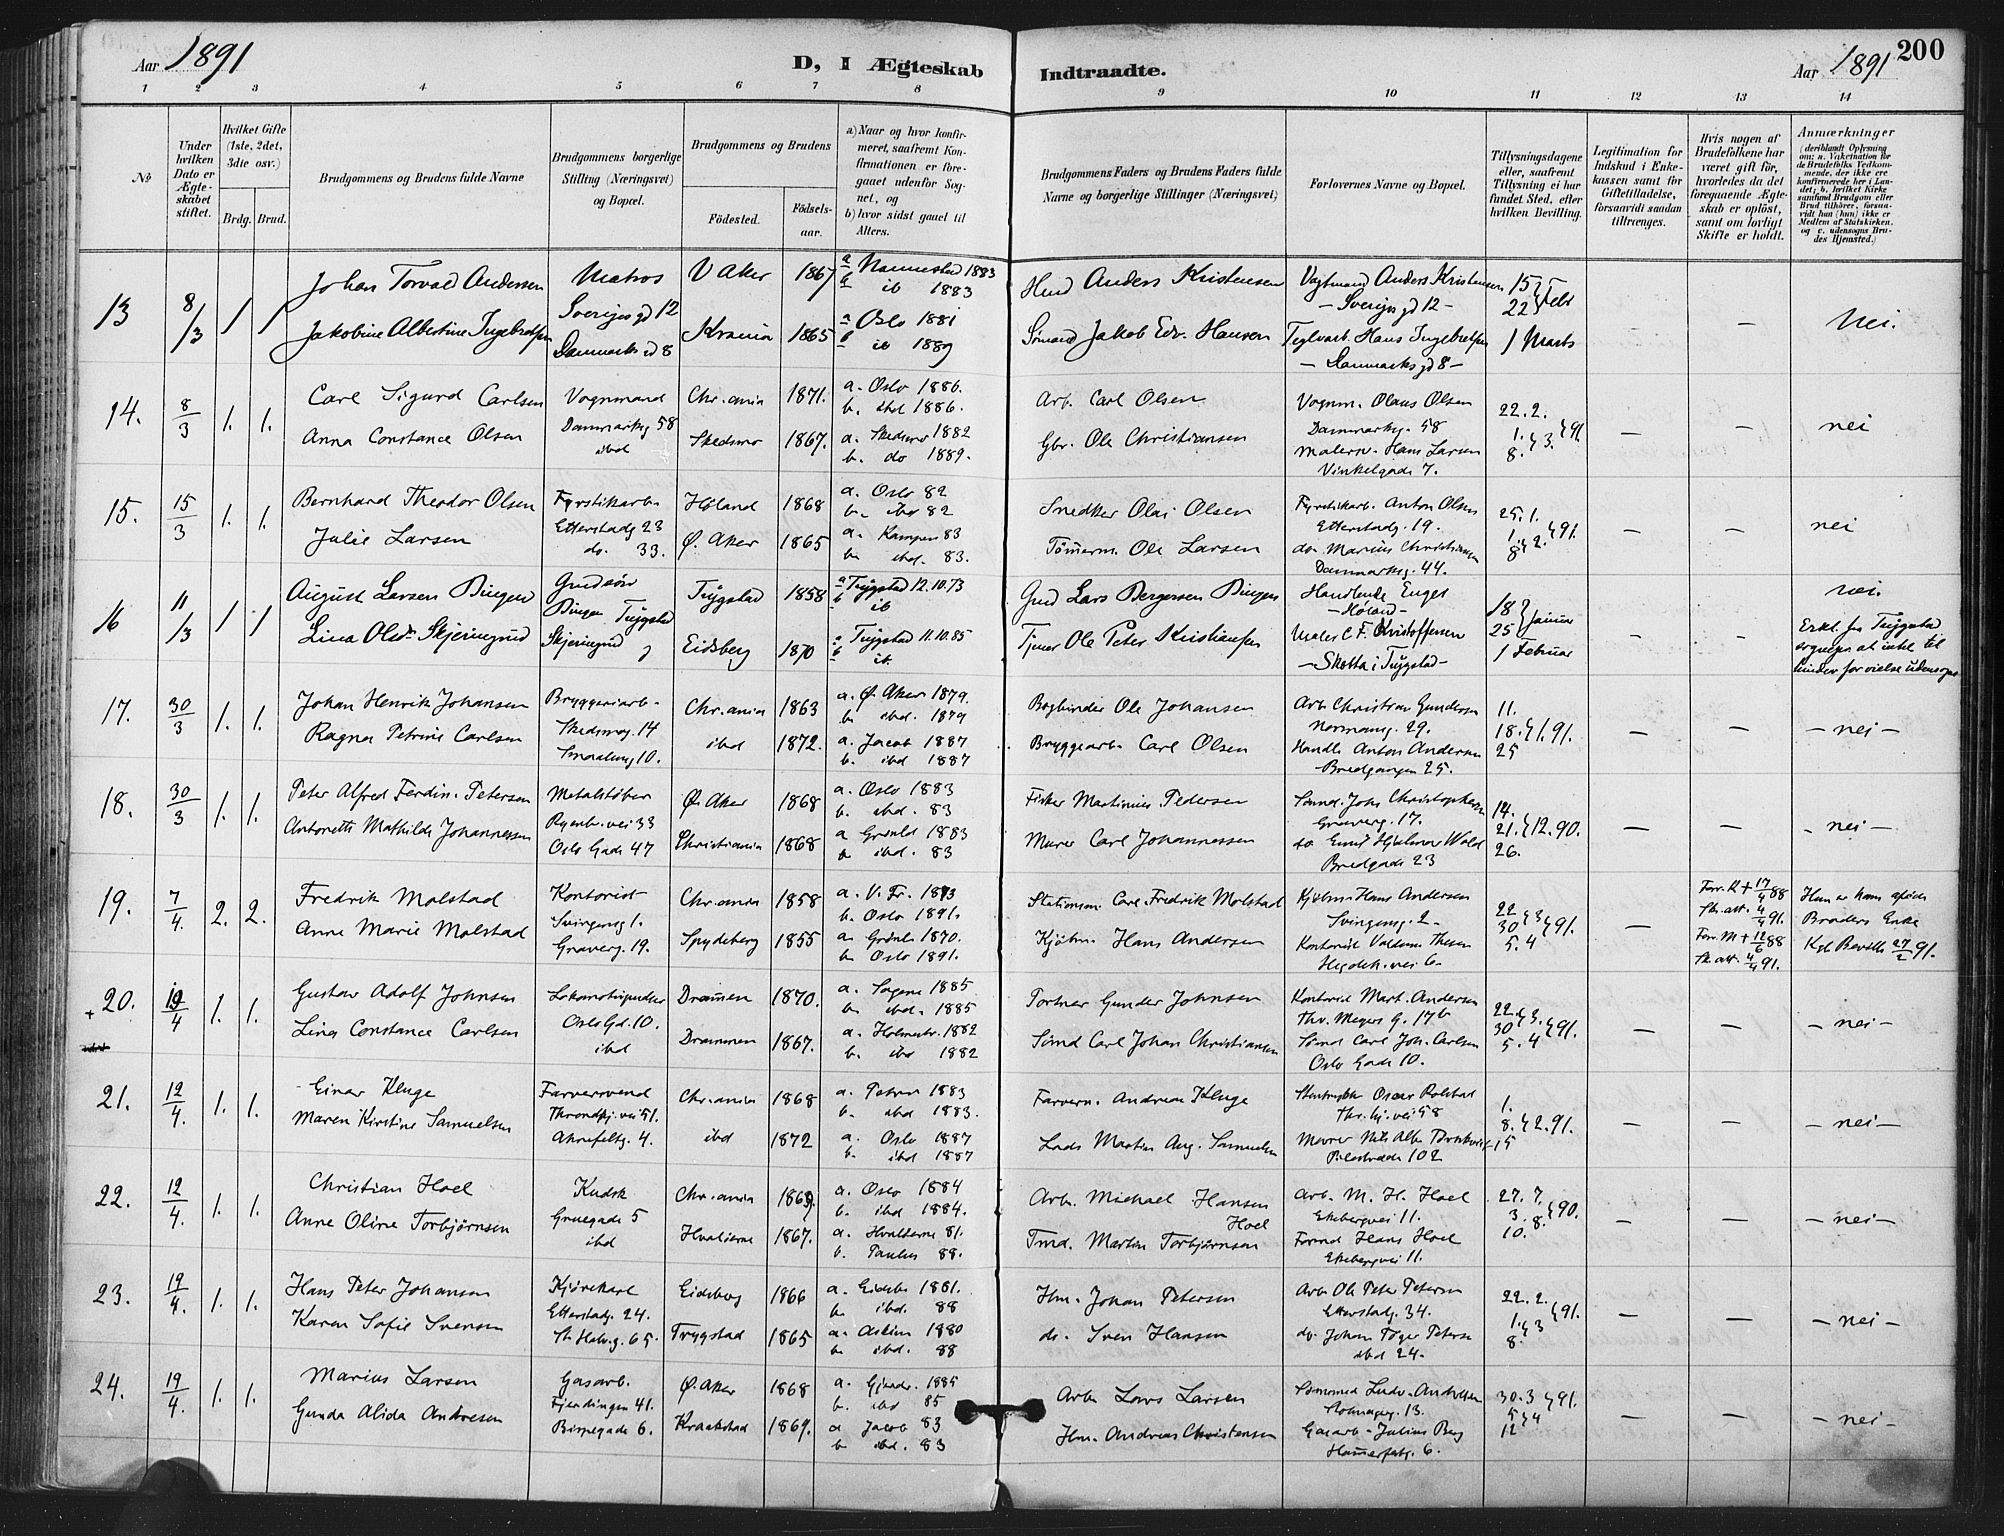 Aar 1891
D, I Ægteskab
Indtraadte.
Aar 1891
200
1 2 3 4 5 6 7 8 9 10 11 12 13 14
No
Under hvilken Dato er Ægteskabet stiftet.
Hvilket Gifte (1ste, 2det, 3die osv.)
Brdg. Brud.
Brudgommens og Brudens fulde Navne
Brudgommens borgerlige Stilling (Næringsvei) og Bopæl.
Brudgommens og Brudens
Födested.
Födsels-aar.
a) Naar og hvor konfirmeret, saafremt Konfirmationen er foregaaet udenfor Sognet, og
b) hvor sidst gaaet til Alters.
Brudgommens Faders og Brudens Faders fulde Navne og borgerlige Stillinger (Næringsvei)
Forlovernes Navne og Bopæl.
Tillysningsdagene eller, saafremt Tillysning ei har fundet Sted, efter hvilken Bevilling.
Legitimation for Indskud i Enkekassen samt for Giftetilladelse, forsaavidt saadan tiltrænges.
Hvis nogen af Brudefolkene har været gift för, hvorledes da det foregaaende Ægteskab er oplöst, samt om lovligt Skifte er holdt.
Anmærkninger
(deriblandt Oplysning om: a. Vakcination for de Brudefolks Vedkommende, der ikke ere konfirmerede her i Landet; b. hvilket Kirkesamfund Brudgom eller Brud tilhörer, forsaavidt han (hun) ikke er Medlem af Statskirken, og c. udensogns Brudes Hjemsted.)
13 8/3 1 1 Johan Torvald Andersen Matros Sverigesgd 12 V Aker 1867 a Nannestad 1883 b ib 1883 Anders Kristensen Vagtmand Anders Kristensen – Sverigsgd 12 – 15 22 Febr
Jakobine Albertine Ingebretsen Danmarksgd 8 Krania 1865 a Oslo 1881 b ib 1889 Sömand Jakob Edv. Hansen Teglvarb. Hans Ingebretsen – Danmarksgd 8 – 1 Marts – – Nei.
14. 8/3 1. 1. Carl Sigurd Carlsen Vognmand Danmarksg 58 Chr.ania 1871. a. Oslo 1886. b. ibd 1886. Arb. Carl Olsen Vognm. Olaus Olsen Danmarksg. 58 22. 2.
Anna Constance Olsen ibd Skedsmo 1867. a. Skedsmo 1882 b. do 1889. Gbr. Ole Christiansen Malerm. Hans Larsen Vinkelgade 7. 1. 8. 3. 91. – – nei
15. 15/3 1. 1. Bernhard Theodor Olsen Fyrstikarb. Etterstadg 23 Høland 1868 a. Oslo 82 b. ibd 82 Snedker Olai Olsen Fyrstikarb. Anton Olsen Etterstadg. 19. 25. 1.
Julie Larsen do. 33. Ø. Aker 1865 a. Kampen 83 b. ibd. 83. Tömerm. Ole Larsen do Marius Christiansen Danmarksg. 44. 1. 8. 2. 91. – – nei
16 11/3 1 1 August Larsen Bingen Gaardsön Bingen Trygstad Trygstad 1858 a Trygstad 12.10.73 b ib Gmd Lars Bergersen Bingen Handlende Engen – Høland – 18 25 Januar nei.
Lina Olsdr Skjeringrud Skjeringrud Eidsberg 1870 a Trygstad 11.10.85 b ib. Ole Peter Kristiansen Maler C F. Kristoffersen – Skotta i Trygstad – 1 Februar – – Erkl. fra Trygstad sogneps at intet til hinder for vielse udensogns
17. 30/3 1. 1. Johan Henrik Johansen Bryggeriarb. Skedsmog. 14 Chr.ania 1863 a. Ø. Aker 1879. b. ibd. 1879 Bogbinder Ole Johansen Arb. Christian Gundersen Normansg. 29. 11. 18. 1. 91.
Ragna Petrine Carlsen Smaalensg 10. ibid 1872. a. Jacob 1887 b. ibd 1887 Bryggearb. Carl Olsen Handl. Anton Andersen Bredgangen 25. 25 – – – nei –
18. 30/3 1. 1. Peter Alfred Ferdin. Petersen Metalstöber Ryenb. vei 33 Ø. Aker 1868 a. Oslo 1883 b. ibd. 83 Fisker Martinius Pedersen Sömd. Johs Christophersen Graverg. 17. 14. 21. 12. 90.
Antonette Mathilde Johannessen Oslo Gade 47 Christiania 1868 a Grönld 1883 b ibd. 83 Murer Carl Johannessen do Emil Hjalmar Wold Bredgade 23 26. – – – nei –
19. 7/4 2. 2. Fredrik Molstad Kontorist Svingeng 1. Chr.ania 1858 a. V. Fr. 1873 b. Oslo 1891. Stationsm. Carl Fredrik Molstad Kjöbm. Hans Andersen Svingeng. 2 – 22 30 3 91. – Forr. K + 17/4 88 Sk. att. 4/4 91. Hun er hans afdöde Broders Enke
Anne Marie Molstad Graverg. 19. Spydeberg 1855 a. Grönl. 1870. b. Oslo 1891. Kjöbm. Hans Andersen Kontorist Valdem. Thesen Hegdeh. vei 6 – 5. 4 Forr. M + 12/6 88 Sk. att. 4/4 91. Kgl. Bevill. 27/2 91.
+ 20. 12/4 1. 1. Gustav Adolf Johnsen Lokomotivpudser Oslo Gd. 10. Drammen 1870. a. Sagene 1885 b. ibd. 1885 Portner Gunder Johnsen Kontorist Mart. Andersen Thv. Meyers G. 17b 22. 30 3. 91.
Lina Constance Carlsen ibd Drammen 1867. a. Holmestr. 1882 b. ibd 1882 Sömd Carl Johan Christiansen Sömd Carl Joh. Carlsen Oslo Gade 10. 5. 4 – – – nei –
21. 12/4 1. 1. Einar Kluge Farversvend Throndhj. vei 51. Chr.ania 1868 a. Petrus 1883 b. ibd 1883. Farverm. Andreas Kluge Stentrykker Oscar Rolstad Thr. hj. vei 58 1. 8. 2. 91.
Maren Kirstine Samuelsen Akersfeltg. 4. ibd 1872 a. Oslo 1887 b. ibd 1887 Lods Martin Aug. Samuelsen Murer Nils Alb. Pilestrædet 102 15 – – – nei –
22. 12/4 1. 1. Christian Hoel Kudsk Gruegade 5 Chr.ania 1869. a. Oslo 1884 b. ibd 1884. Arb. Michael Hansen Hoel Arb. M. H. Hoel Ekebergvei 11. 27. 7. 3. 8. 90.
Anne Oline Torbjørnsen ibd Hvalöerne 1867. a. Hvalöerne 81. b. Paulus 88. Tmd. Martin Torbjørnsen Formd Hans Hoel Ekebergvei 11. 10. – – – nei –
23. 19/4. 1. 1. Hans Peter Johansen Kjörekarl Etterstadg. 24. Eidsberg 1866 a. Eidsb. 1881. b. ibd. 88 Hm. Johan Petersen Arb. Ole Peter Petersen Etterstadg. 34. 22. 2.
Karen Sofie Svensen St. Halvg. 65. Trygstad 1865 a. Askim 1880 b. ibd. 88 do. Sven Hansen do. Johan Peters. ibd 24. 1. 8. 3 91. – – – nei –
24. 19/4. 1. 1. Marius Larsen Gasarb. Fjerdingen 41. Ø. Aker 1868 a. 1885 b. ibd 85 Arb. Lars Larsen Ludv. Andersen 13. 30. 3 91.
Gunda Alida Andresen Birpegade 6. Kraakstad 1869. a Jacob 83 b ibd. 83 Hm. Andreas Christensen Gasarb. Julius Berg Hammerfestg. 6. 5 4 12 – – – nei –